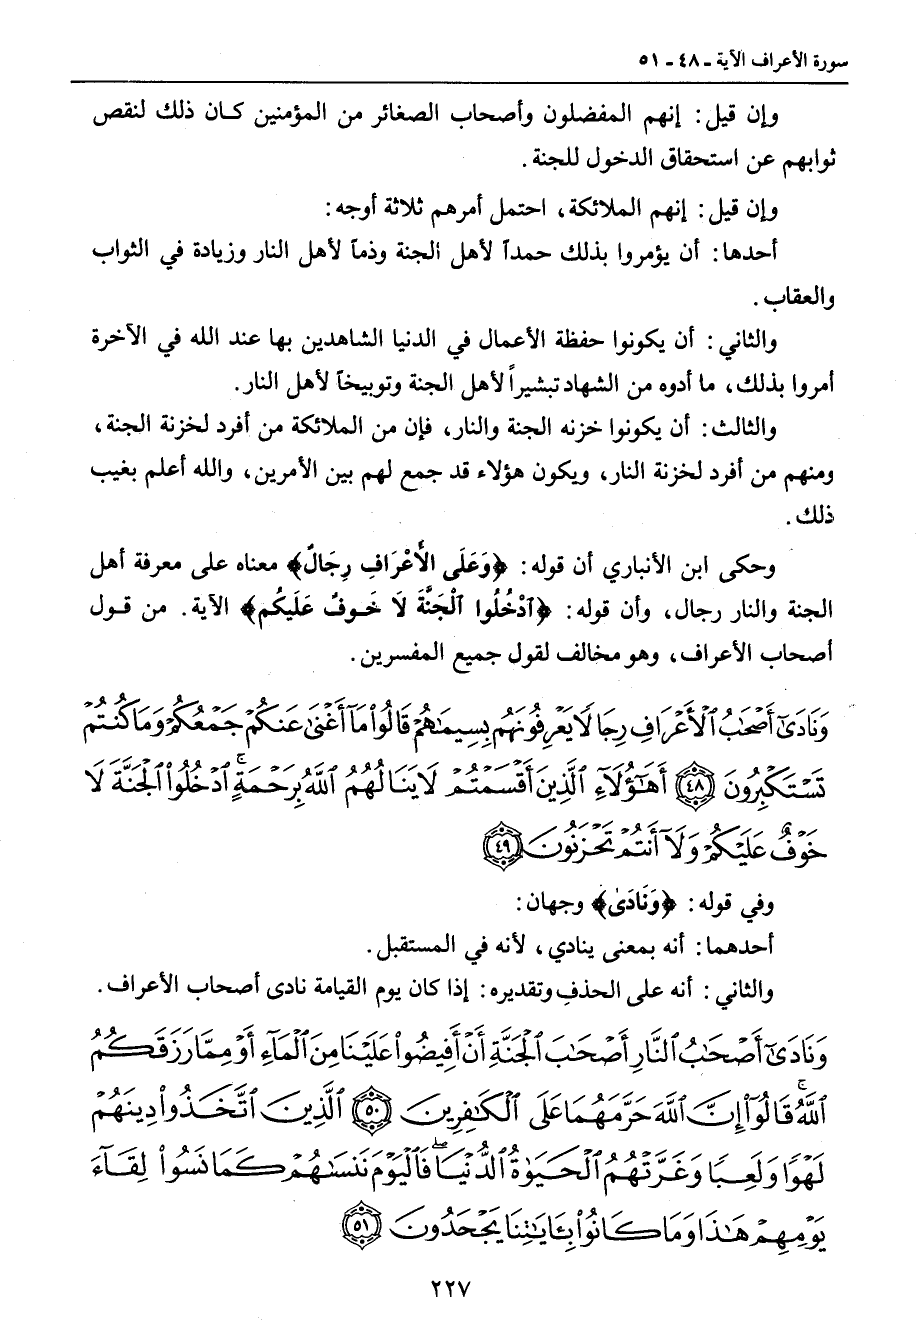 سورة الأعراف الآية ـ ٤٨ ـ ٥١
وإن قيل: إنهم المفضلون وأصحاب الصغائر من المؤمنين كان ذلك لنقص
ثوابهم عن استحقاق الدخول للجنة.
وإن قيل: إنهم الملائكة، احتمل أمرهم ثلاثة أوجه:
أحدها: أن يؤمروا بذلك حمداً لأهل الجنة وذماً لأهل النار وزيادة في الثواب
والعقاب.
والثاني: أن يكونوا حفظة الأعمال في الدنيا الشاهدين بها عند الله في الآخرة
أمروا بذلك، ما أدوه من الشهاد تبشيراً لأهل الجنة وتوبيخاً لأهل النار.
والثالث: أن يكونوا خزنه الجنة والنار، فإن من الملائكة من أفرد لخزنة الجنة،
ومنهم من أفرد لخزنة النار، ويكون هؤلاء قد جمع لهم بين الأمرين، والله أعلم بغيب
ذلك.
وحكى ابن الأنباري أن قوله: ﴿وَعَلَى الأَعْرَافِ رِجَالٌ﴾ معناه على معرفة أهل
الجنة والنار رجال، وأن قوله: ﴿ٱدْخُلُوا ٱلْجَنَّةَ لَا خَوفٌ عَلَيكُم﴾ الآية. من قول
أصحاب الأعراف، وهو مخالف لقول جميع المفسرين.
وَنَادَىٰٓ أَصْحَٰبُ ٱلْأَعْرَافِ رِجَالًا يَعْرِفُونَهُم بِسِيمَىٰهُمْ قَالُوا۟ مَآ أَغْنَىٰ عَنكُمْ جَمْعُكُمْ وَمَا كُنتُمْ
تَسْتَكْبِرُونَ ٤٨ أَهَٰٓؤُلَآءِ ٱلَّذِينَ أَقْسَمْتُمْ لَا يَنَالُهُمُ ٱللَّهُ بِرَحْمَةٍ ۚ ٱدْخُلُوا۟ ٱلْجَنَّةَ لَا
خَوْفٌ عَلَيْكُمْ وَلَآ أَنتُمْ تَحْزَنُونَ ٤٩
وفي قوله: ﴿وَنَادَىٰ﴾ وجهان:
أحدهما: أنه بمعنى ينادي، لأنه في المستقبل.
والثاني: أنه على الحذف وتقديره: إذا كان يوم القيامة نادى أصحاب الأعراف.
وَنَادَىٰٓ أَصْحَٰبُ ٱلنَّارِ أَصْحَٰبَ ٱلْجَنَّةِ أَنْ أَفِيضُوا۟ عَلَيْنَا مِنَ ٱلْمَآءِ أَوْ مِمَّا رَزَقَكُمُ
ٱللَّهُ ۚ قَالُوٓا۟ إِنَّ ٱللَّهَ حَرَّمَهُمَا عَلَى ٱلْكَٰفِرِينَ ٥٠ ٱلَّذِينَ ٱتَّخَذُوا۟ دِينَهُمْ
لَهْوًا وَلَعِبًا وَغَرَّتْهُمُ ٱلْحَيَوٰةُ ٱلدُّنْيَا ۚ فَٱلْيَوْمَ نَنسَىٰهُمْ كَمَا نَسُوا۟ لِقَآءَ
يَوْمِهِمْ هَٰذَا وَمَا كَانُوا۟ بِـَٔايَٰتِنَا يَجْحَدُونَ ٥١
٢٢٧